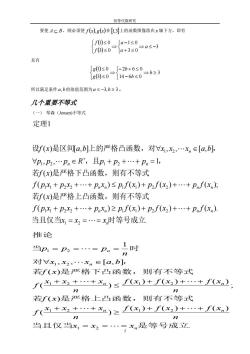 初等代数研究
要使 A⊂B，则必须使 f(x),g(x)在[1,3]上的函数图像落在 x 轴下方，即有
{f(1)≤0 f(3)≤0 ⇒ {a−1≤0 a+3≤0 ⇒ a≤−3
且有
{g(1)≤0 g(3)≤0 ⇒ {−2b+6≤0 14−6b≤0 ⇒ b≥3
所以满足条件 a,b 的取值范围为 a≤−3,b≥3。
几个重要不等式
（一） 琴森（Jensen)不等式
定理1
设f(x)是区间[a,b]上的严格凸函数，对∀x₁,x₂,⋯xₙ∈[a,b],
∀p₁,p₂,⋯pₙ∈R⁺，且p₁+p₂+⋯+pₙ=1,
若f(x)是严格下凸函数，则有不等式
f(p₁x₁+p₂x₂+⋯+pₙxₙ)≤p₁f(x₁)+p₂f(x₂)+⋯+pₙf(xₙ);
若f(x)是严格上凸函数，则有不等式
f(p₁x₁+p₂x₂+⋯+pₙxₙ)≥p₁f(x₁)+p₂f(x₂)+⋯+pₙf(xₙ).
当且仅当x₁=x₂=⋯=xₙ时等号成立
推论
当p₁=p₂=⋯=pₙ=1/n时
对∀x₁,x₂,⋯xₙ∈[a,b],
若f(x)是严格下凸函数，则有不等式
f((x₁+x₂+⋯+xₙ)/n)≤(f(x₁)+f(x₂)+⋯+f(xₙ))/n;
若f(x)是严格上凸函数，则有不等式
f((x₁+x₂+⋯+xₙ)/n)≥(f(x₁)+f(x₂)+⋯+f(xₙ))/n
当且仅当x₁=x₂=⋯=xₙ是等号成立